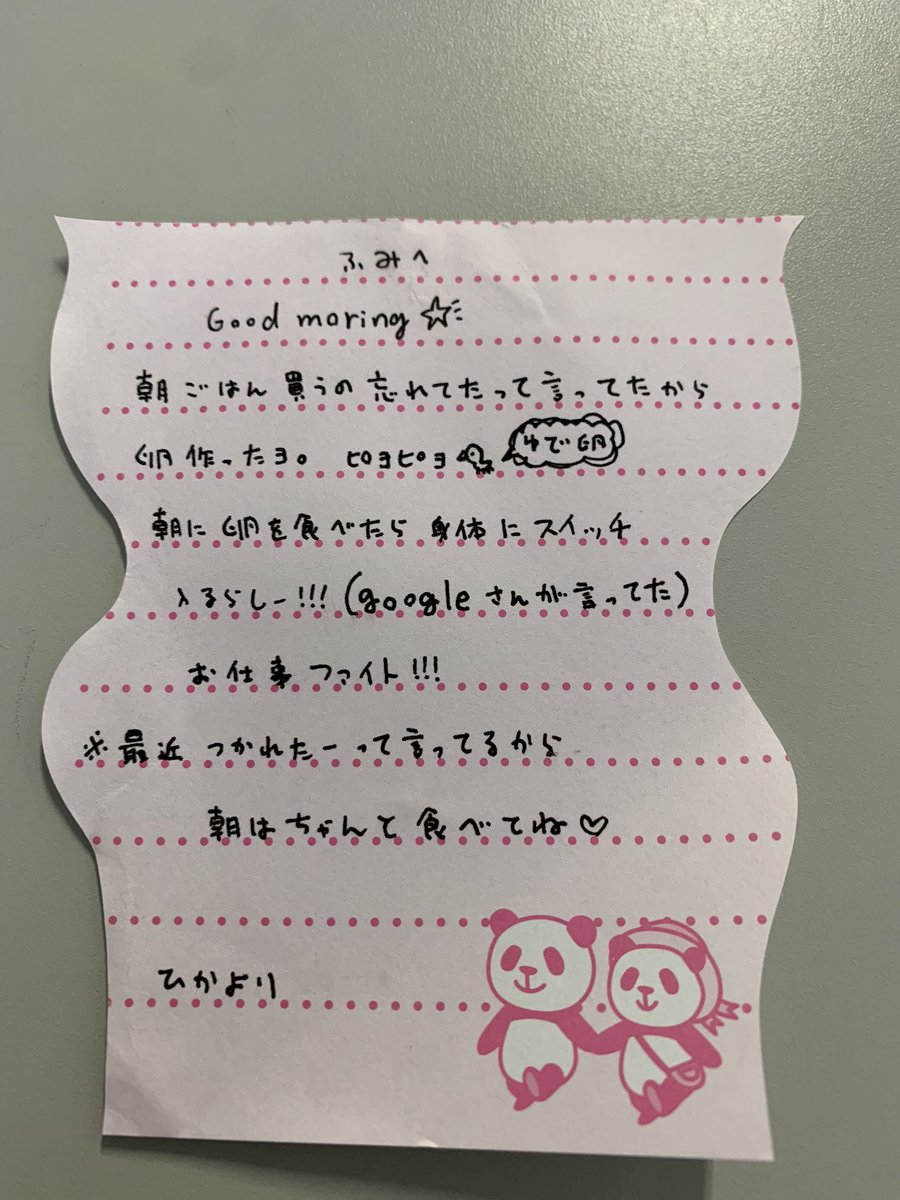 ふみへ
Good moring☆
朝ごはん買うの忘れてたって言ってたから
卵作ったヨ。 ピヨピヨ ゆで卵
朝に卵を食べたら身体にスイッチ
入るらしー!!! (googleさんが言ってた)
お仕事ファイト!!!
※最近つかれたーって言ってるから
朝はちゃんと食べてね♡
ひかより